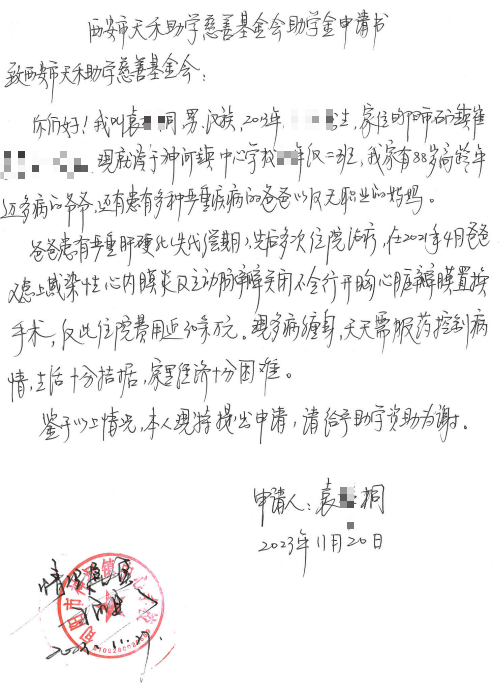 西安市天禾助学慈善基金会助学金申请书
致西安市天禾助学慈善基金会：
你们好！我叫袁 同 男，汉族，2013年 生，家住邵阳市石 镇崔
现就读于神河镇中心学校 年级二班，我家有88岁高龄年
迈多病的爷爷，还有患有多种严重疾病的爸爸以及无职业的妈妈。
爸爸患有严重肝硬化(失代偿期)，先后多次住院治疗，在2021年4月爸爸
又患上感染性心内膜炎及主动脉瓣关闭不全行开胸心脏瓣膜置换
手术，仅此住院费用近 万元。现多病缠身，天天需服药控制病
情，生活十分拮据，家里经济十分困难。
鉴于以上情况，本人现特提出申请，请给予助学资助为谢。
申请人：袁 桐
2023年11月20日
情况真实
2023.11.27.